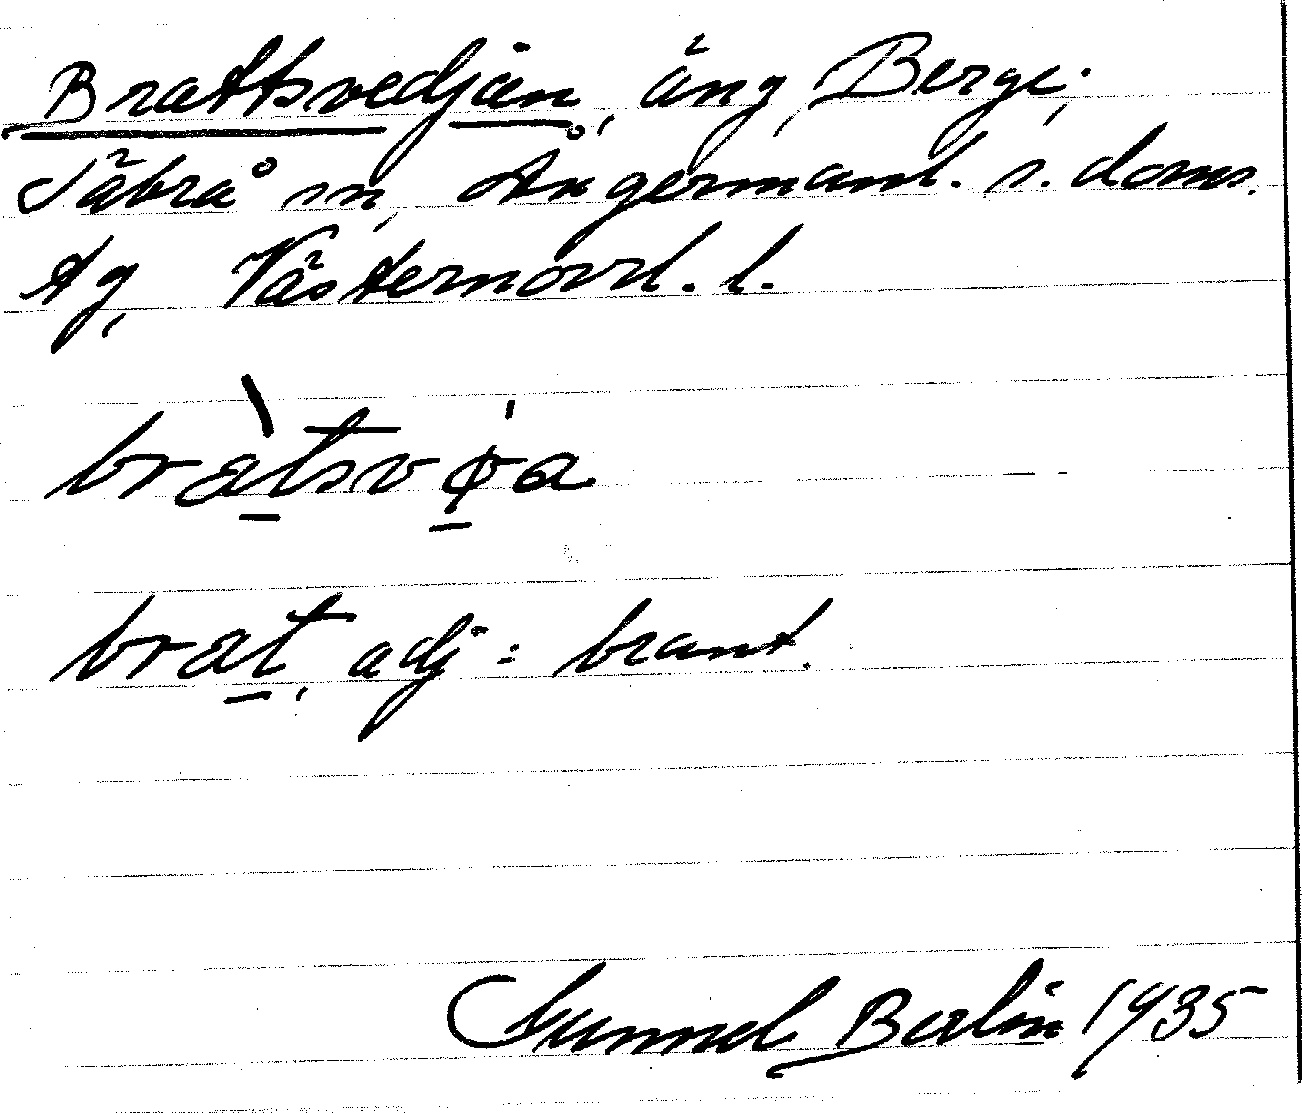 Brattsvedjan, äng, Berge,
Säbrå sn, Ångermanl. s. doms.
tg, Västernorrl. l.
bràtsvφ'a
brat, adj = brant.
Gunnel Berlin 1935